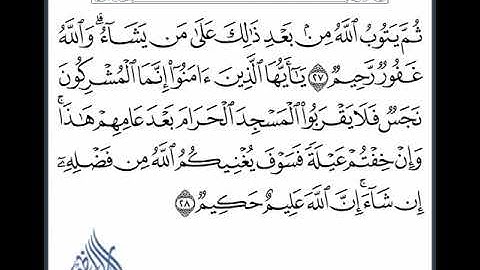 ثُمَّ يَتُوبُ ٱللَّهُ مِنۢ بَعْدِ ذَٰلِكَ عَلَىٰ مَن يَشَآءُ ۗ وَٱللَّهُ
غَفُورٌ رَّحِيمٌ ٢٧ يَـٰٓأَيُّهَا ٱلَّذِينَ ءَامَنُوٓا۟ إِنَّمَا ٱلْمُشْرِكُونَ
نَجَسٌ فَلَا يَقْرَبُوا۟ ٱلْمَسْجِدَ ٱلْحَرَامَ بَعْدَ عَامِهِمْ هَـٰذَا ۚ
وَإِنْ خِفْتُمْ عَيْلَةً فَسَوْفَ يُغْنِيكُمُ ٱللَّهُ مِن فَضْلِهِۦٓ
إِن شَآءَ ۚ إِنَّ ٱللَّهَ عَلِيمٌ حَكِيمٌ ٢٨